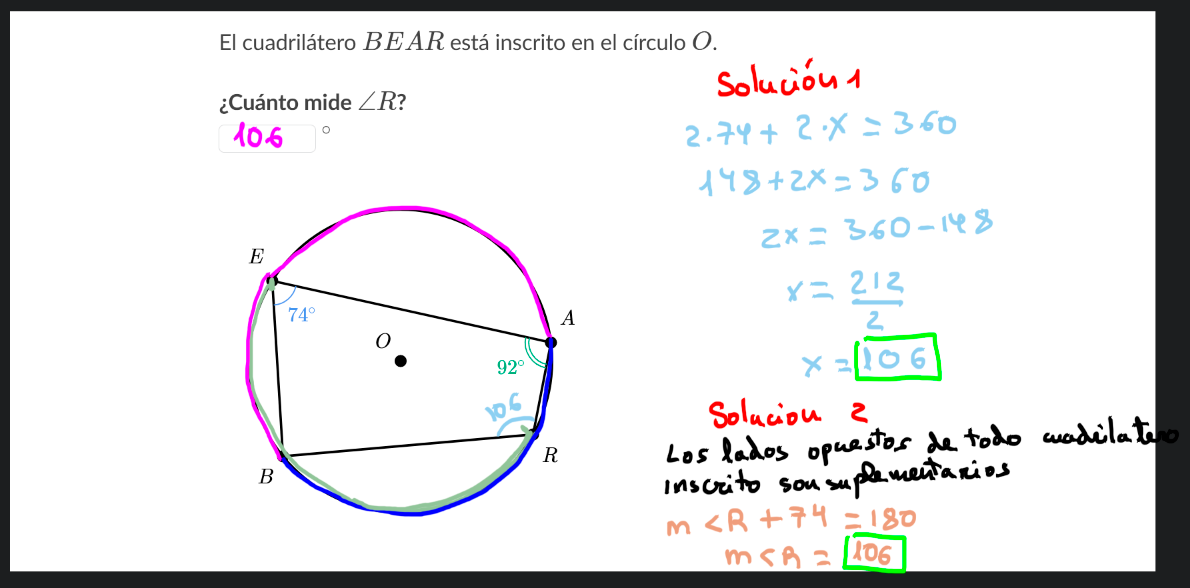 El cuadrilátero BEAR está inscrito en el círculo O.
¿Cuánto mide ∠R?
106 °
E
74°
A
O
92°
106
R
B
Solución 1
2.74 + 2·x = 360
148+2x=360
2x = 360-148
x = 212
2
x = 106
Solucion 2
Los lados opuestos de todo cuadrilatero
inscrito son suplementarios
m<R + 74 = 180
m<R = 106